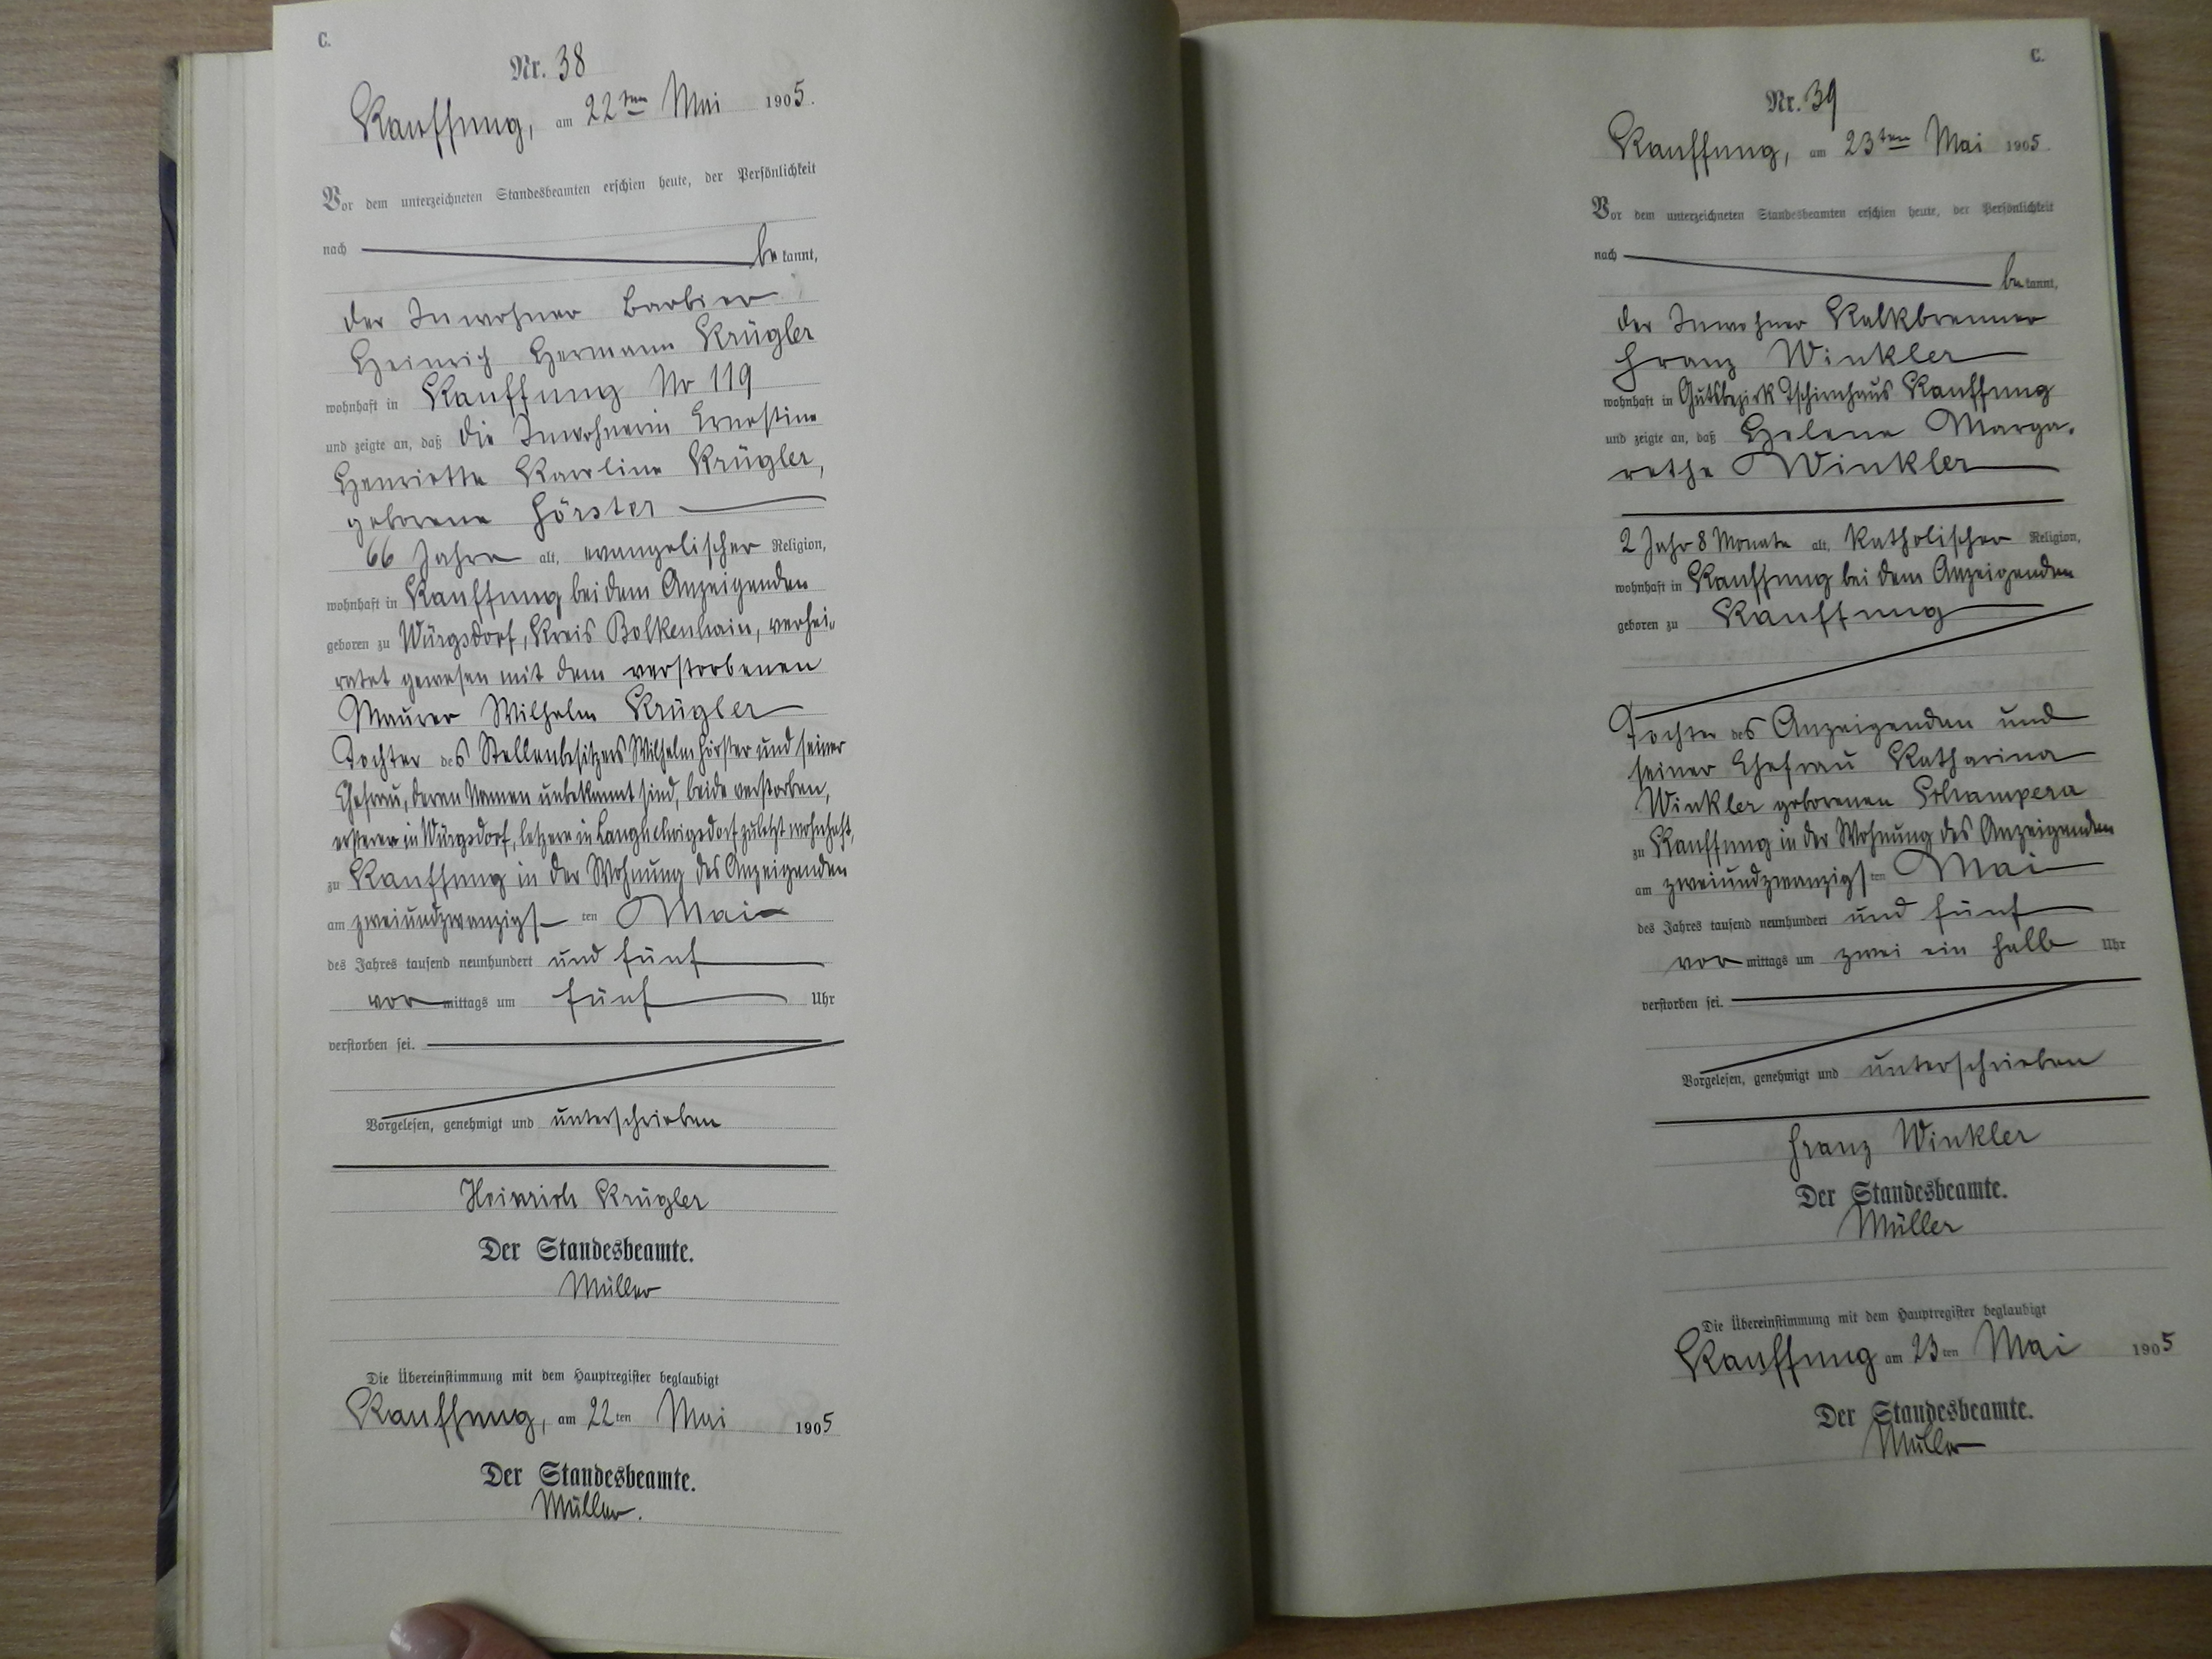 C.
Nr. 38
Kauffung, am 22ten Mai 1905.
Vor dem unterzeichneten Standesbeamten erschien heute, der Persönlichkeit
nach be kannt,
der Inwohner Barbier
Heinrich Hermann Krügler
wohnhaft in Kauffung No 119
und zeigte an, daß die Inwohnerin Ernestine
Henriette Karoline Krügler,
geborene Förster
66 Jahre alt, evangelischer Religion,
wohnhaft in Kauffung bei dem Anzeigenden
geboren zu Würgsdorf, Kreis Bolkenhain, verhei-
ratet gewesen mit dem verstorbenen
Maurer Wilhelm Krügler
Tochter des Stellenbesitzers Wilhelm Förster und seiner
Ehefrau, deren Namen unbekannt sind, beide verstorben,
ersterer in Würgsdorf, letzere in Langhelwigsdorf zuletzt wohnhaft,
zu Kauffung in der Wohnung des Anzeigenden
am zweiundzwanzigs ten Mai
des Jahres tausend neunhundert und fünf
vor mittags um fünf Uhr
verstorben sei.
Vorgelesen, genehmigt und unterschrieben
Heinrich Krügler
Der Standesbeamte.
Müller
Die Übereinstimmung mit dem Hauptregister beglaubigt
Kauffung, am 22ten Mai 1905
Der Standesbeamte.
Müller.
C.
Nr. 39
Kauffung, am 23ten Mai 1905.
Vor dem unterzeichneten Standesbeamten erschien heute, der Persönlichkeit
nach be kannt,
der Inwohner Kalkbrenner
Franz Winkler
wohnhaft in Gutsbezirk Tschirnhaus Kauffung
und zeigte an, daß Helene Marga-
rethe Winkler
2 Jahr 8 Monate alt, katholischer Religion,
wohnhaft in Kauffung bei dem Anzeigenden
geboren zu Kauffung
Tochter des Anzeigenden und
seiner Ehefrau Katharina
Winkler geborenen Schampera
zu Kauffung in der Wohnung des Anzeigenden
am zweiundzwanzigs ten Mai
des Jahres tausend neunhundert und fünf
vor mittags um zwei ein halb Uhr
verstorben sei.
Vorgelesen, genehmigt und unterschrieben
Franz Winkler
Der Standesbeamte.
Müller
Die Übereinstimmung mit dem Hauptregister beglaubigt
Kauffung am 23ten Mai 1905
Der Standesbeamte.
Müller